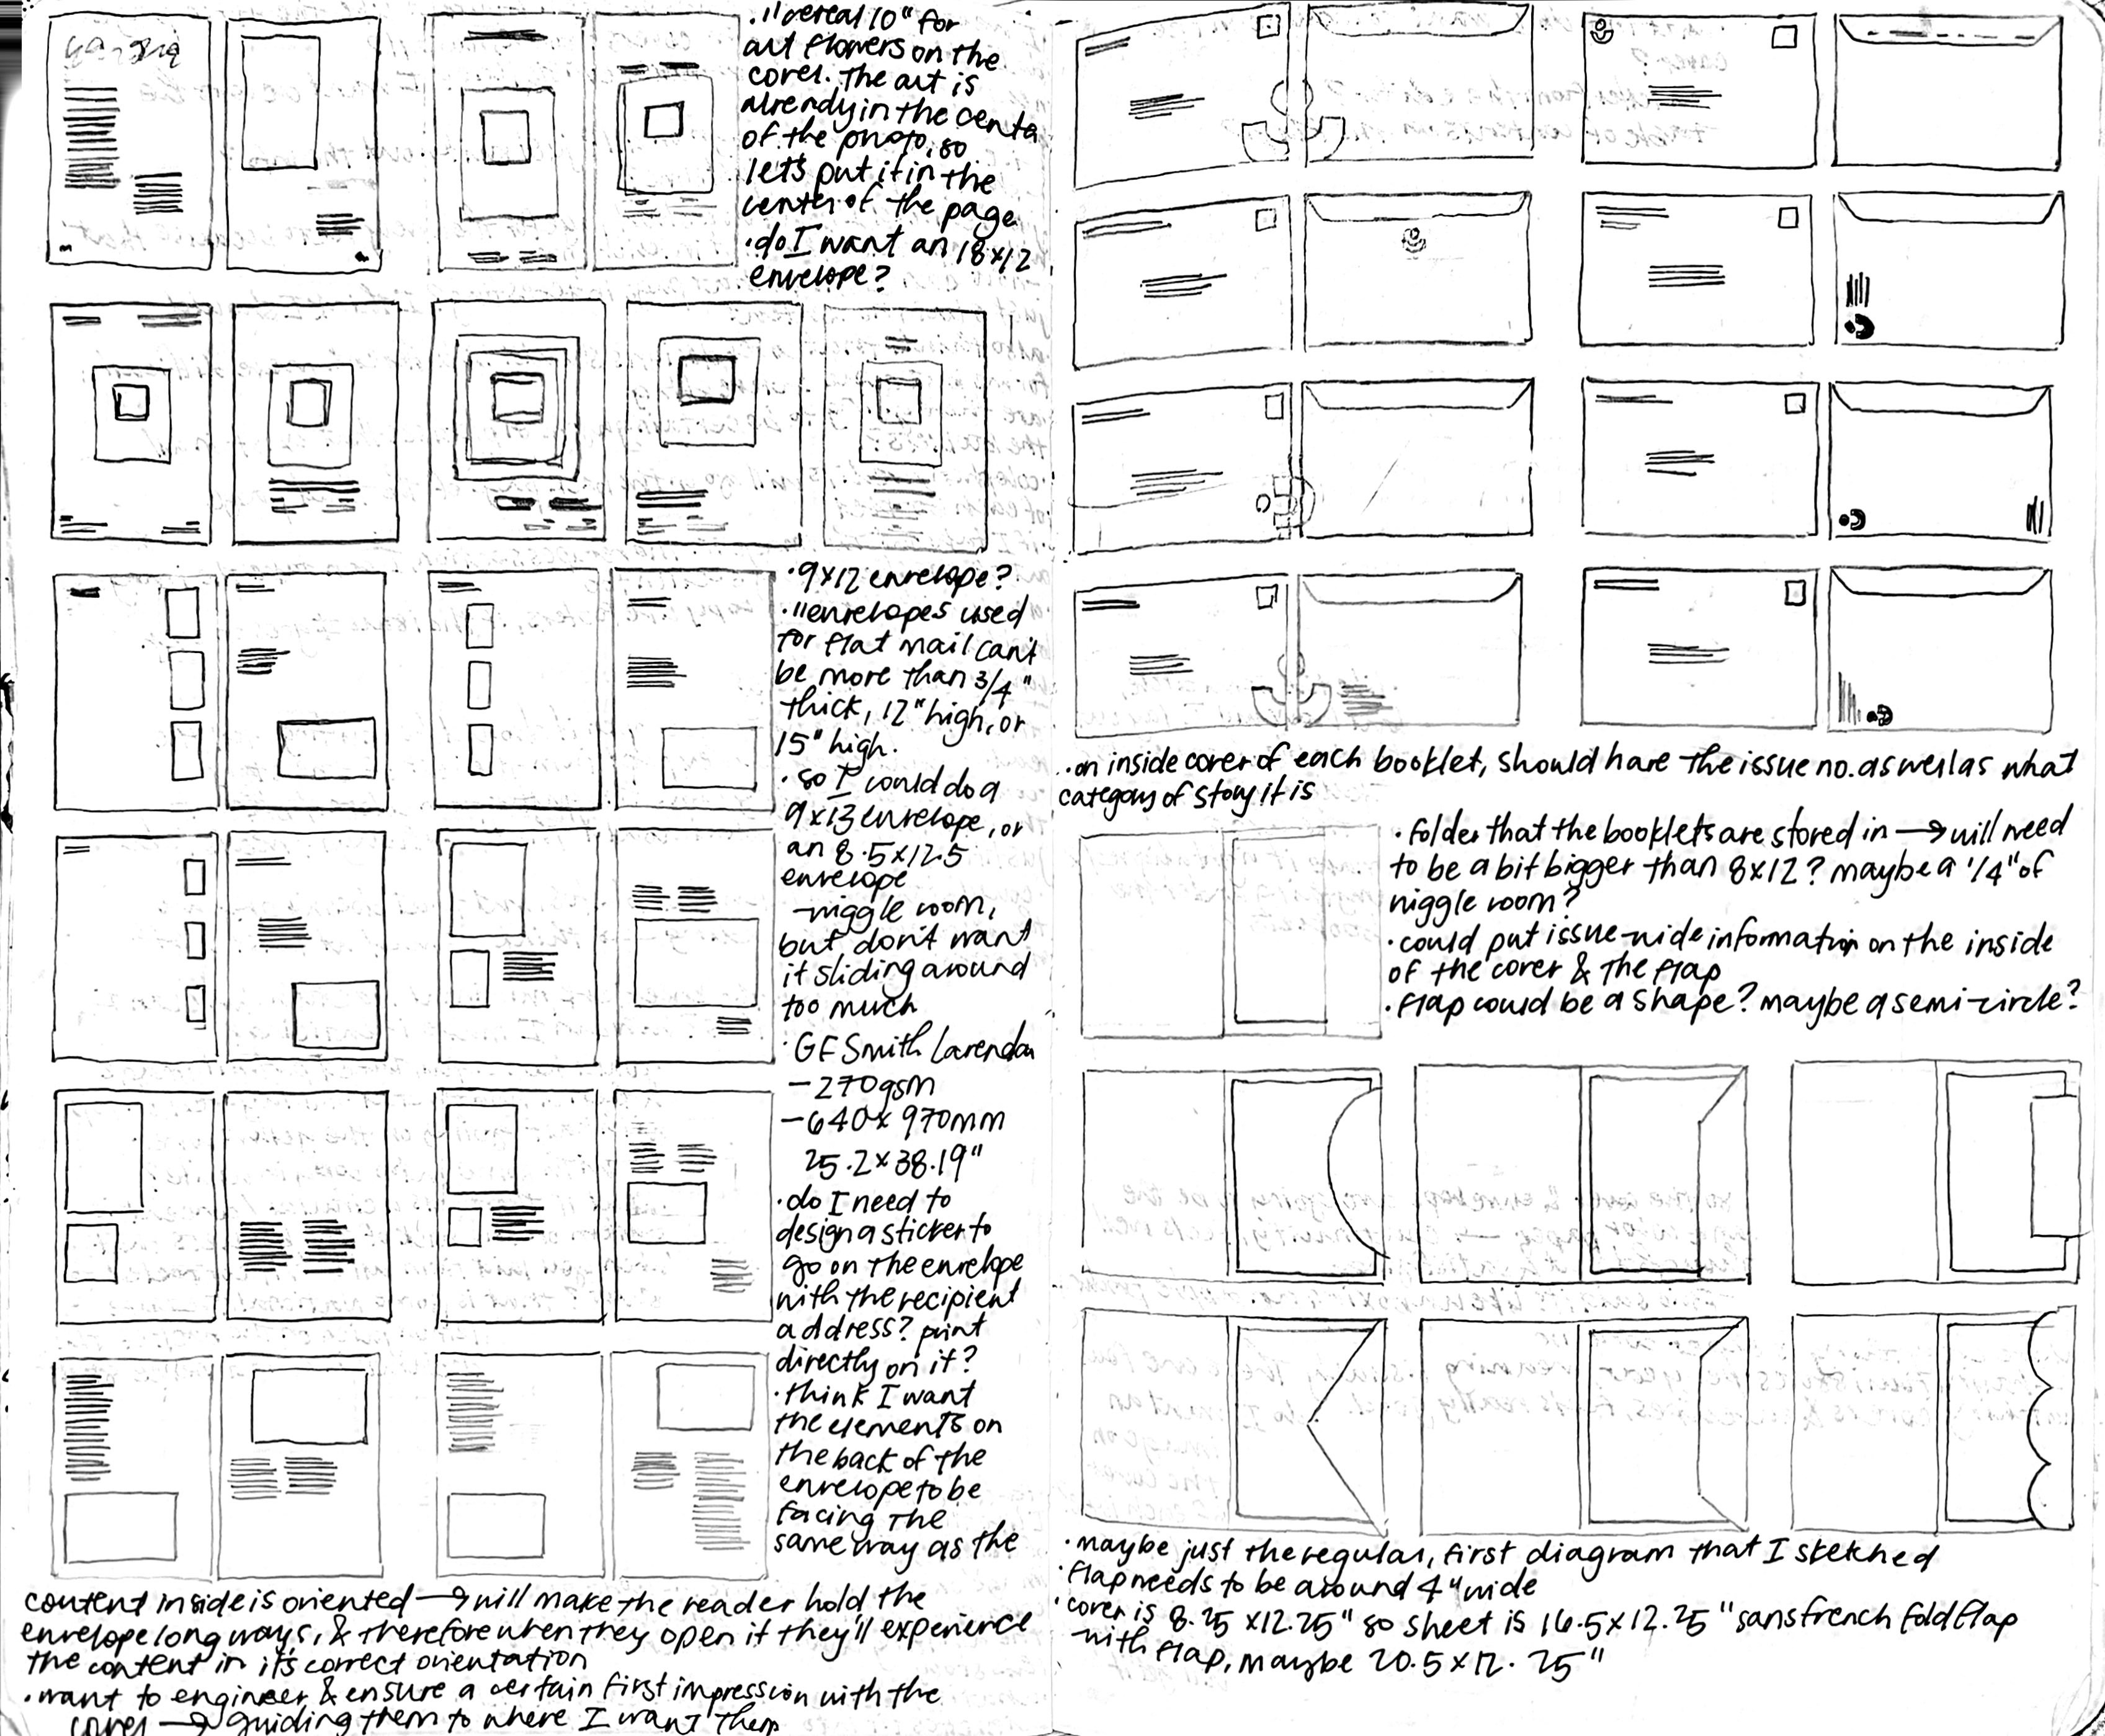 for
art flowers on the
cover. The art is
already in the center
of the photo, so
let's put it in the
center of the page
·do I want an 18x12
envelope?
·9x12 envelope?
·"envelopes used
for flat mail can't
be more than 3/4"
thick, 12" high, or
15" high.
·so I could do a
9x13 envelope, or
an 8.5x12.5
envelope
-wiggle room,
but don't want
it sliding around
too much
·GF Smith
-270gsm
-640x970mm
25.2x38.19"
·do I need to
design a sticker to
go on the envelope
with the recipient
address? print
directly on it?
·think I want
the elements on
the back of the
envelope to be
facing the
same way as the
content inside is oriented → will make the reader hold the
envelope long ways, & therefore when they open it they'll experience
the content in it's correct orientation
·want to engineer & ensure a certain first impression with the
cover → guiding them to where I want them
·on inside cover of each booklet, should have the issue no. as well as what
category of story it is
·folder that the booklets are stored in → will need
to be a bit bigger than 8x12? maybe a 1/4" of
wiggle room?
·could put issue-wide information on the inside
of the cover & the flap
·flap could be a shape? maybe a semi-circle?
·maybe just the regular, first diagram that I sketched
·flap needs to be around 4" wide
·cover is 8.25x12.25" so sheet is 16.5x12.25" sans french fold flap
with flap, maybe 20.5x12.25"